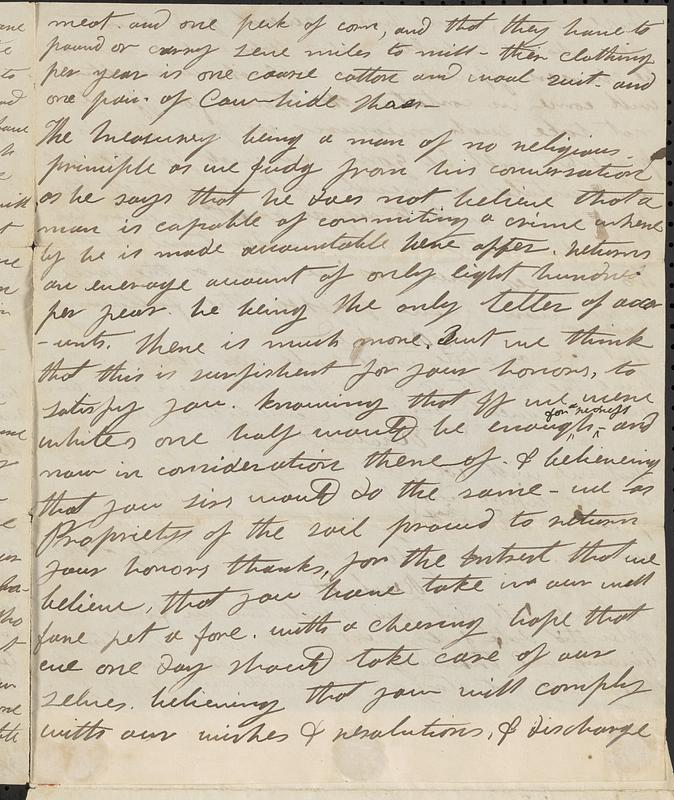 meat. and one peck of corn, and that they have to
pound or carry sene miles to mill - their clothing
per year is one coarse cotton and wool suit - and
one pair of Cow-hide Shoes -
The treasurey being a man of no religious
prinsiple as we judg from his conversation
as he says that he does not believe that a
man is capable of commiting a crime where
by he is made accountable here after. returns
an everage account of only eight hundre
per year. he being the only teller of acco
-unts. there is much more. But we think
that this is surfishent for your honors, to
satisfy you. knowing that If we were
for a redress
whites one half would be enough - and
now in consideration there of. & believeing
that you sirs would do the same - we as
Proprietss of the soil proced to return
your honors thanks, for the Intrest that we
believe, that you have take in our well
fare het a fore. with a cheering hope that
we one day should take care of our
selves. believeing that you will comply
with our wishes & resolutions, & discharge